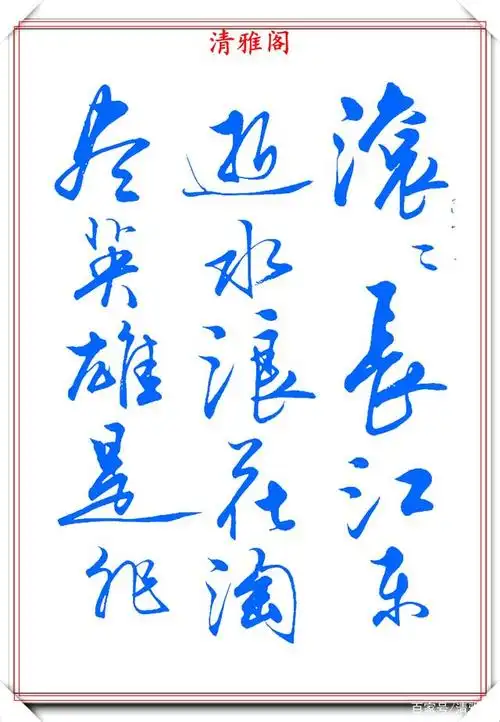 清雅阁
滚〻長江东
逝水浪花淘
尽英雄是非
百家号/清雅